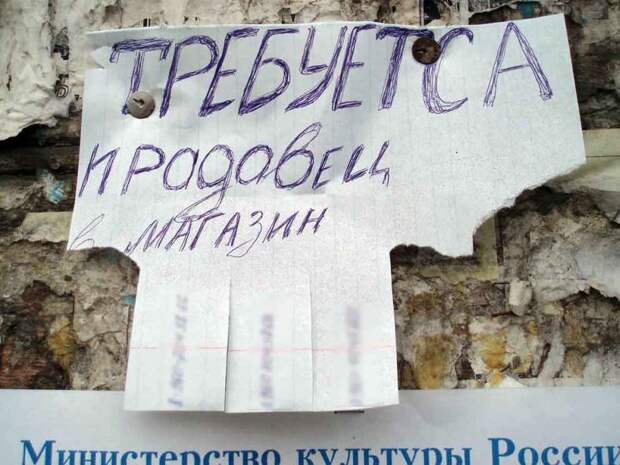 ТРЕБУЕТСА
ПРАДАВЕЦ
в МАГАЗИН
Министерство культуры России